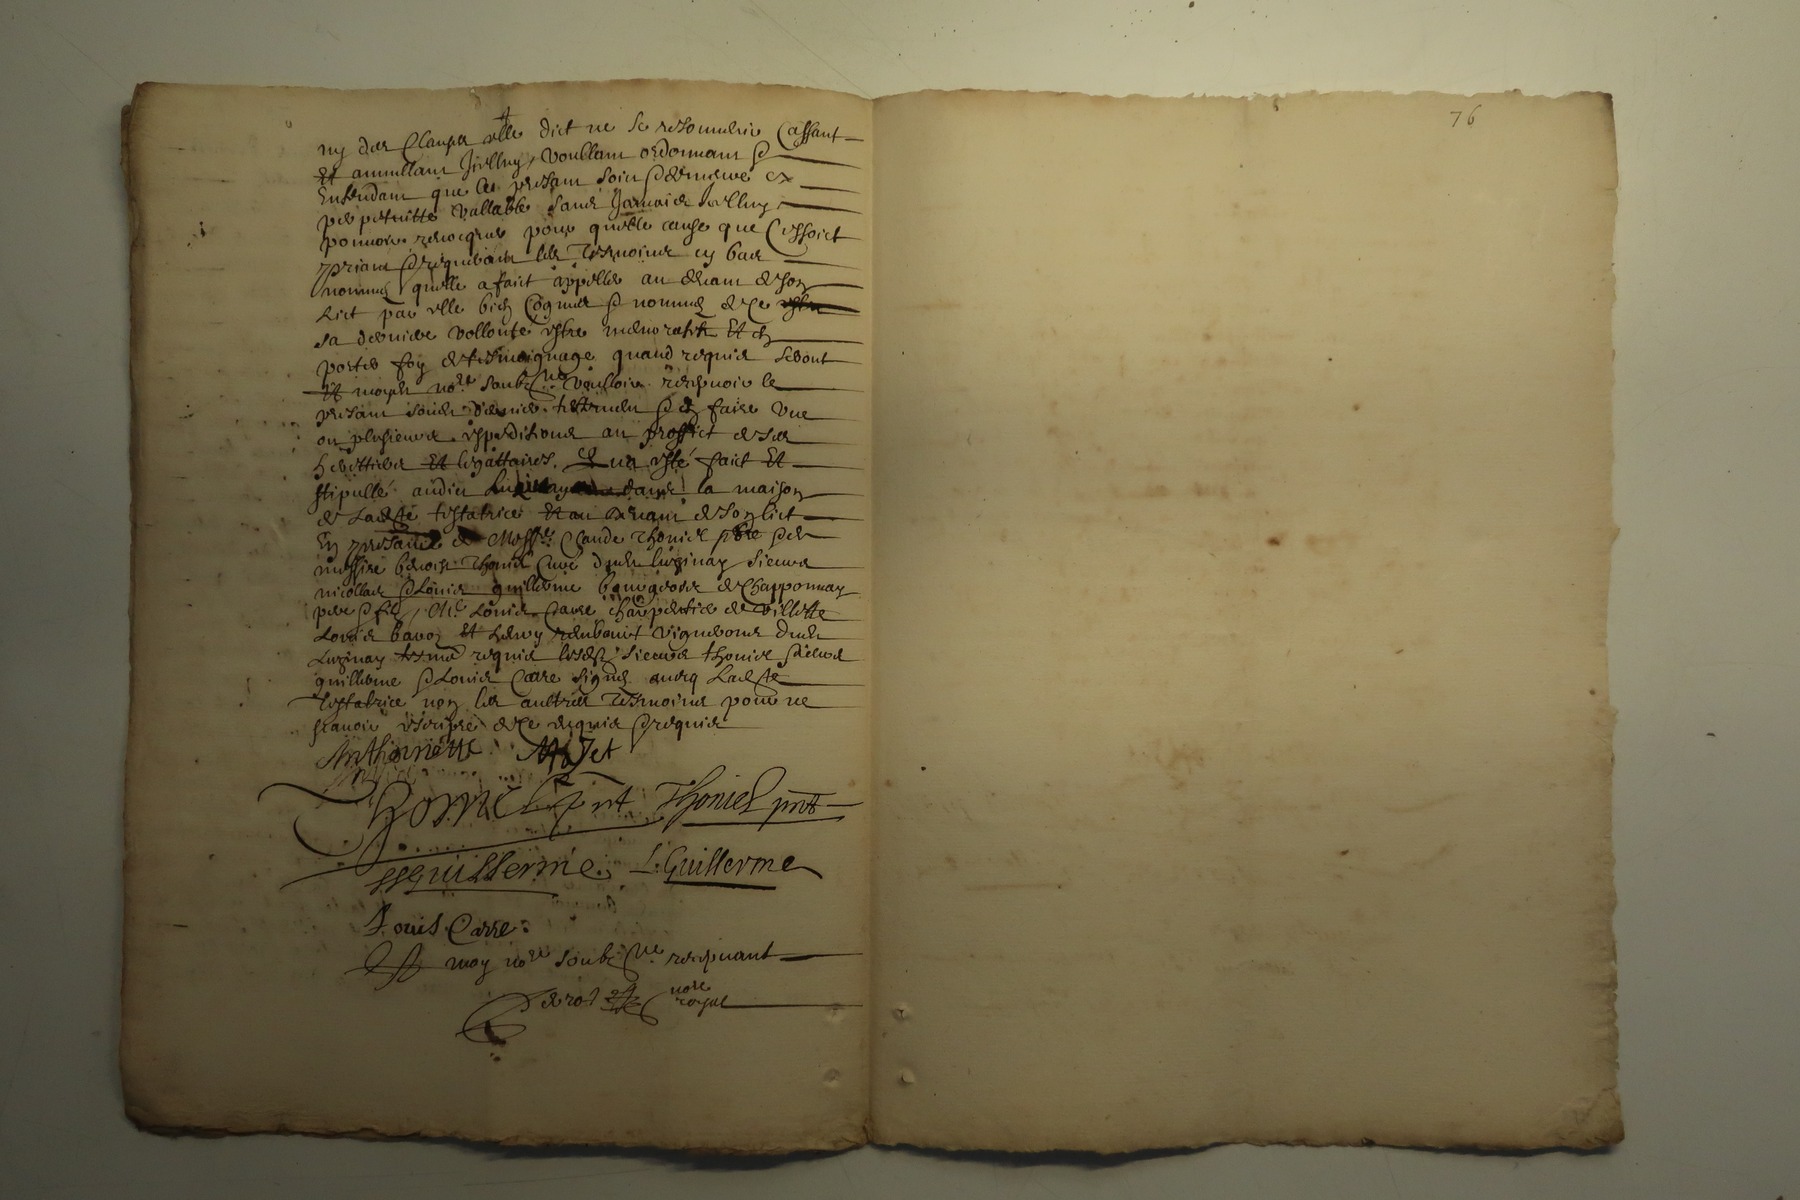 76
ny des Clauses elle dict ne se resouvenir Cassant
Et annullant Icelluy, voullant ordonnant &
Entendant que ce presant soict & demeure
perpetuitte vallable sans Jamais Icelluy
pouvoir revocquer pour quelle cause que Cessoict
priant & requerant les Tesmoins cy bas
nommes quelle a faict appeller au devant de son
Lict par elle bien Cogneus & nommes de Ce
sa derniere vollonte estre memoratifs Et en
porter foy & tesmoignage quand requis seront
Et moydt nore soubzne voulloir recepvoir le
presant sondt dernier testament & en faire une
ou plusieurs expeditions au proffict de ses
heritiers Et legattaires. Ce qua este faict Et
stipulle audict Luzinay dans la maison
de Ladte testatrice Et au devant de son lict
En presance de Messre Claude Thonier pbre &
messire benoist Thonier Cure dudt luzinay sieurs
nicollas & Louis guillerme bourgeois de Chapponnay
pere & fils, Me Louis Carre charpentier de villette
Louis bavoz Et vignerons dudt
Luzinay tesmoins requis lesdts sieurs thonier & sieurs
guillerme & Louis Carre signes avecq Ladte
Testatrice non les aultres Tesmoins pour ne
scavoir escripre de Ce enquis & requis
Anthoinette Mazet
Thonier pnt
Guillerme L Guillerme
Louis Carre
Et moy nore soubzne recepvant
nore
royal